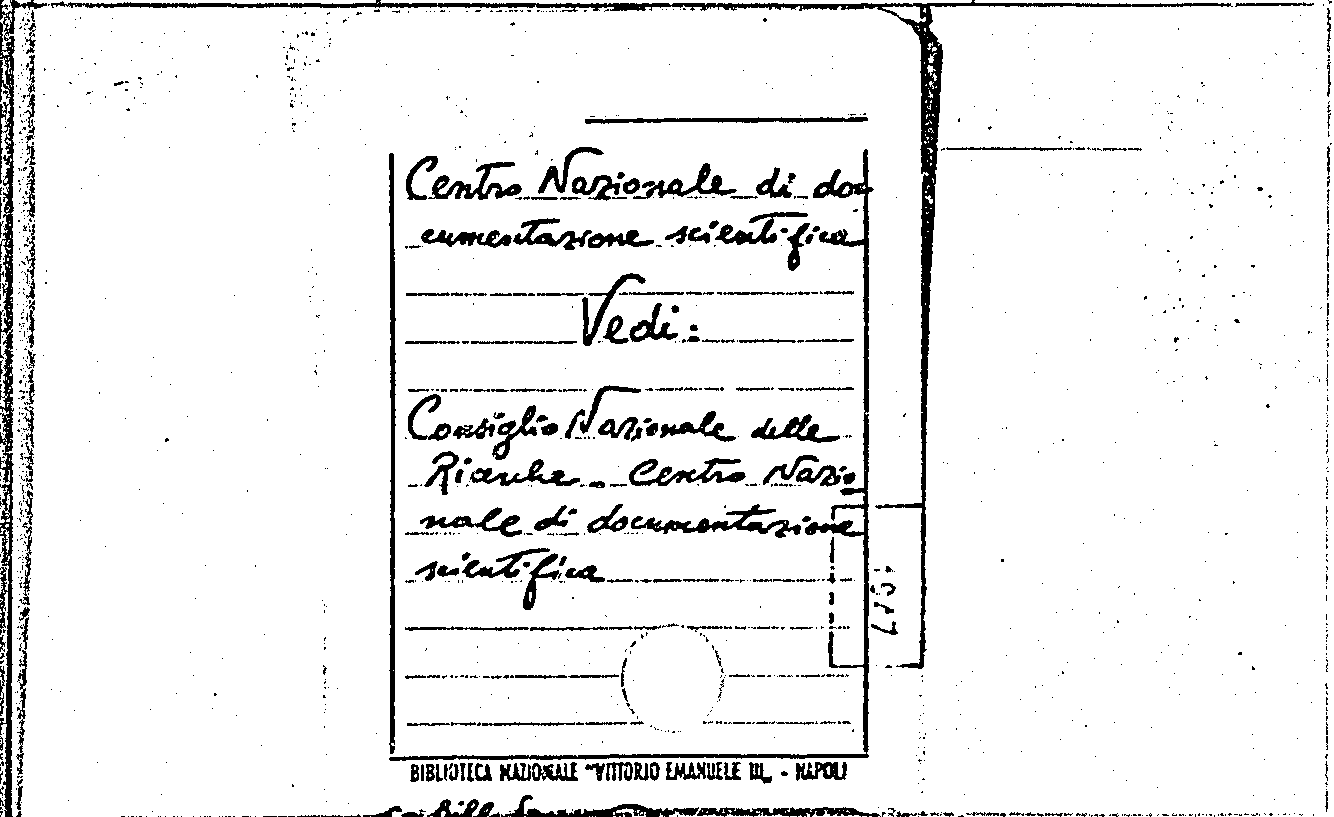 Centro Nazionale di doc
umentazione scientifica
Vedi:
Consiglio Nazionale delle
Ricerche - Centro Nazio
nale di documentazione
scientifica
BIBLIOTECA NAZIONALE "VITTORIO EMANUELE III„ - NAPOLI